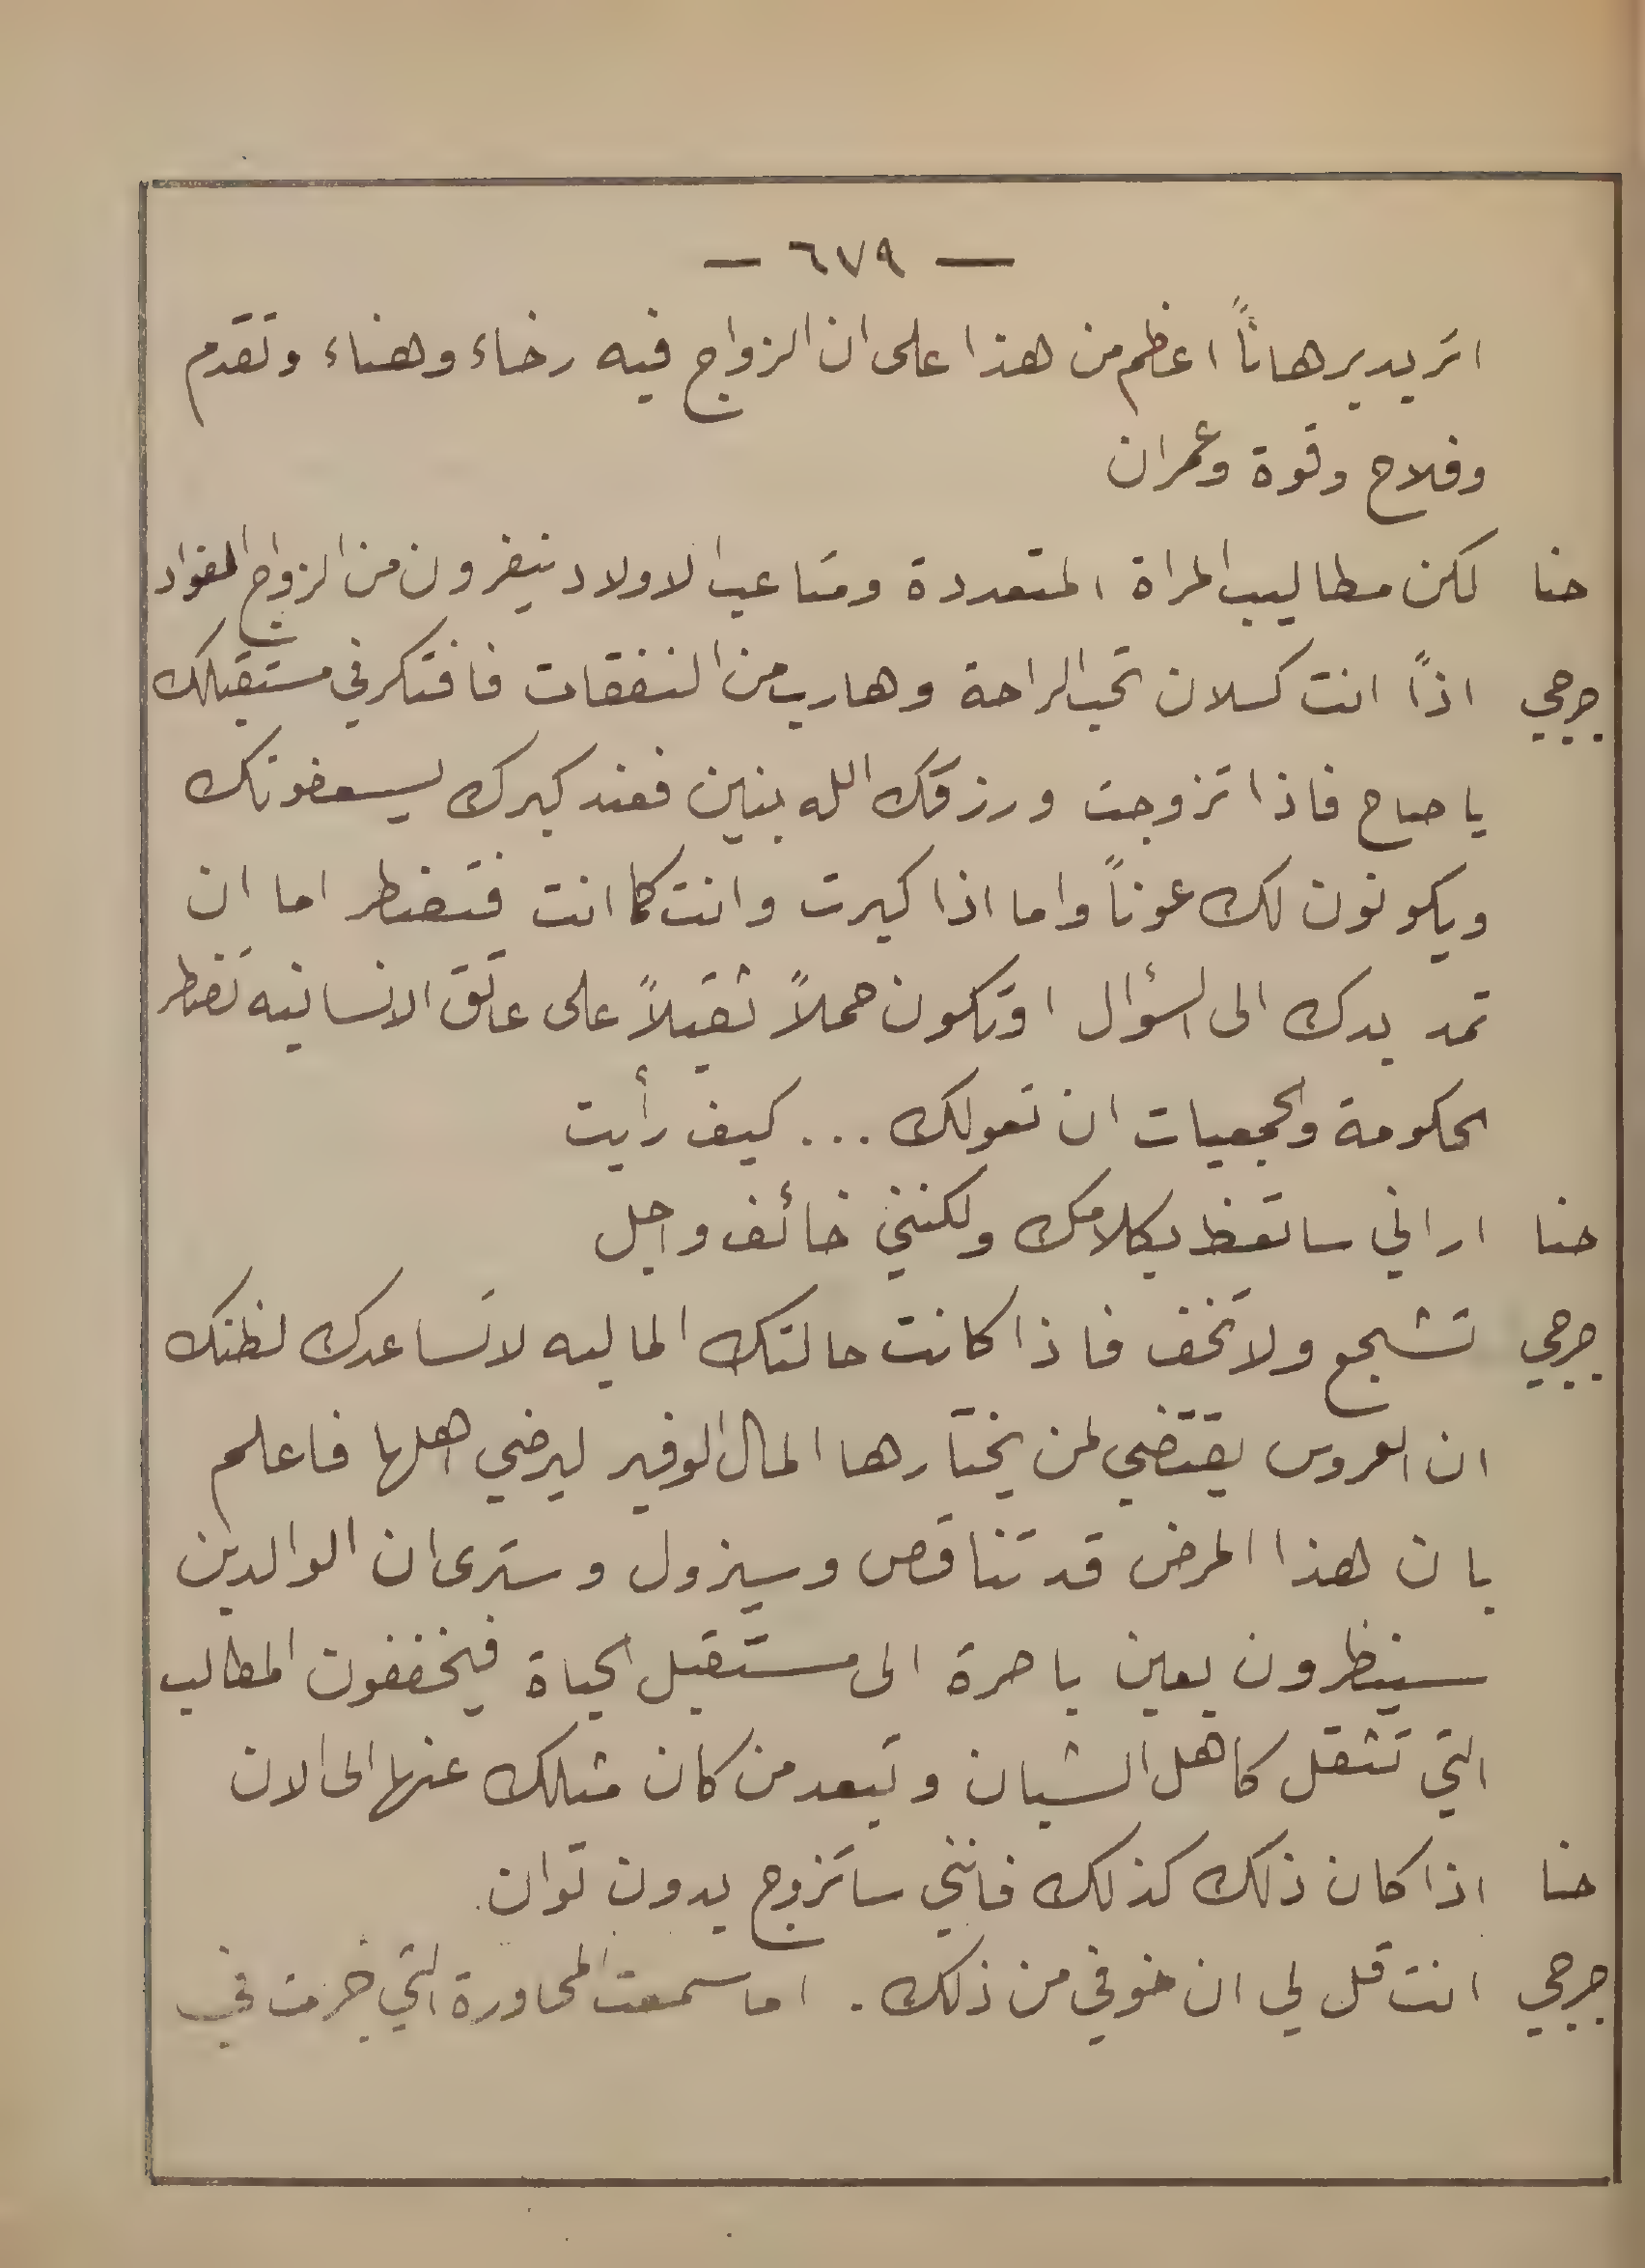 — ٦٧٩ —
اتريد برهاناً اعظم من هذا على ان الزواج فيه رخاء وهناء وتقدم
وفلاح وقوة وعمران
حنا لكن مطاليب المراة المتعددة ومتاعب الاولاد ينفرون من الزواج الفؤاد
جرجي اذاً انت كسلان تحب الراحة وهارب من النفقات فافتكر في مستقبلك
يا صاح فاذا تزوجت ورزقك الله بنين فعند كبرك يسعفونك
ويكونون لك عوناً واما اذا كبرت وانت كما انت فتضطر اما ان
تمد يدك الى السؤال او تكون حملاً ثقيلاً على عاتق الانسانيه تضطر
الحكومة والجمعيات ان تعولك ... كيف رأيت
حنا اراني ساتعظ بكلامك ولكنني خائف واجل
جرجي تشجع ولا تخف فاذا كانت حالتك الماليه لا تساعدك لظنك
ان العروس يقتضي لمن يختارها المال الوفير ليرضي اهلها فاعلم
بان هذا المرض قد تناقص وسيزول وسترى ان الوالدين
سينظرون بعين باصرة الى مستقبل الحياة فيخففون المطاليب
التي تثقل كاهل الشبان وتبعد من كان مثلك عنها الى الان
حنا اذا كان ذلك كذلك فانني ساتزوج بدون توان.
جرجي انت قل لي ان خوفي من ذلك. اما سمعت المحاورة التي جرت في